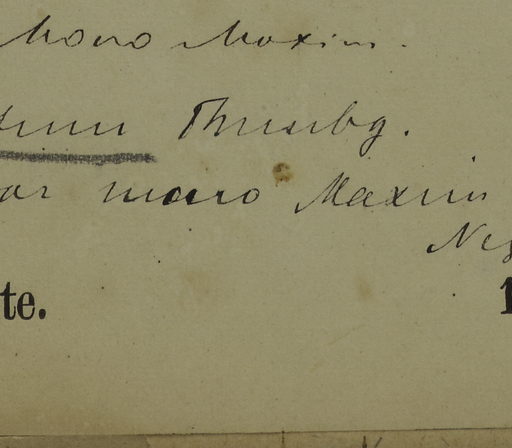 Mono Maxim.
Thunbg.
var mono Maxim
te.
1